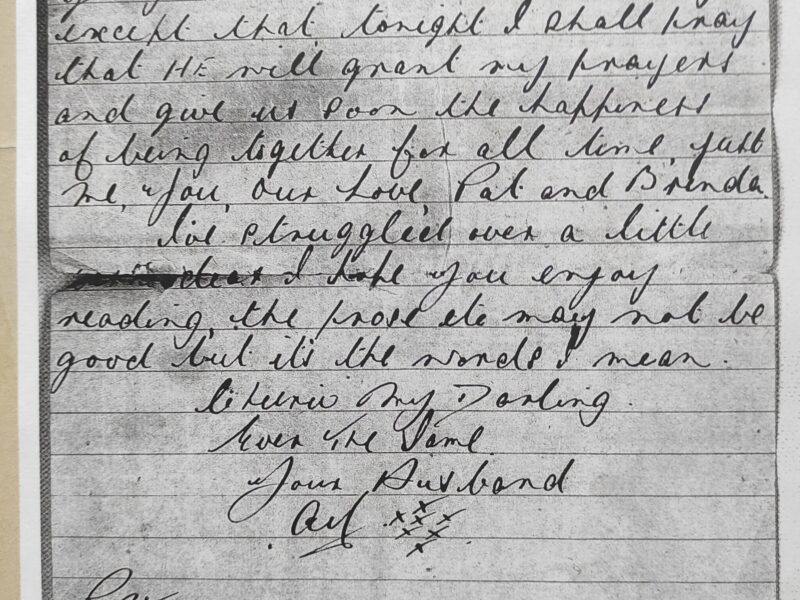 except that tonight I shall pray
that HE will grant my prayers
and give us soon the happiness
of being together for all time, just
me, you, our love, Pat and Brenda.
I've struggled over a little
dear I hope you enjoy
reading, the prose etc may not be
good but it's the words I mean.
Cheerio My Darling.
Ever The Same
Your Husband